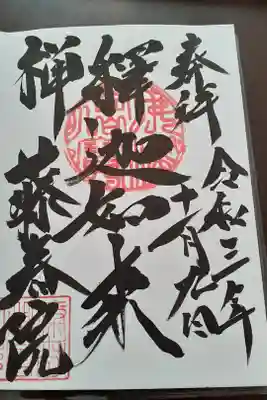 奉拝 令和三年
十一月九日
釋迦如来
禅 藤春院